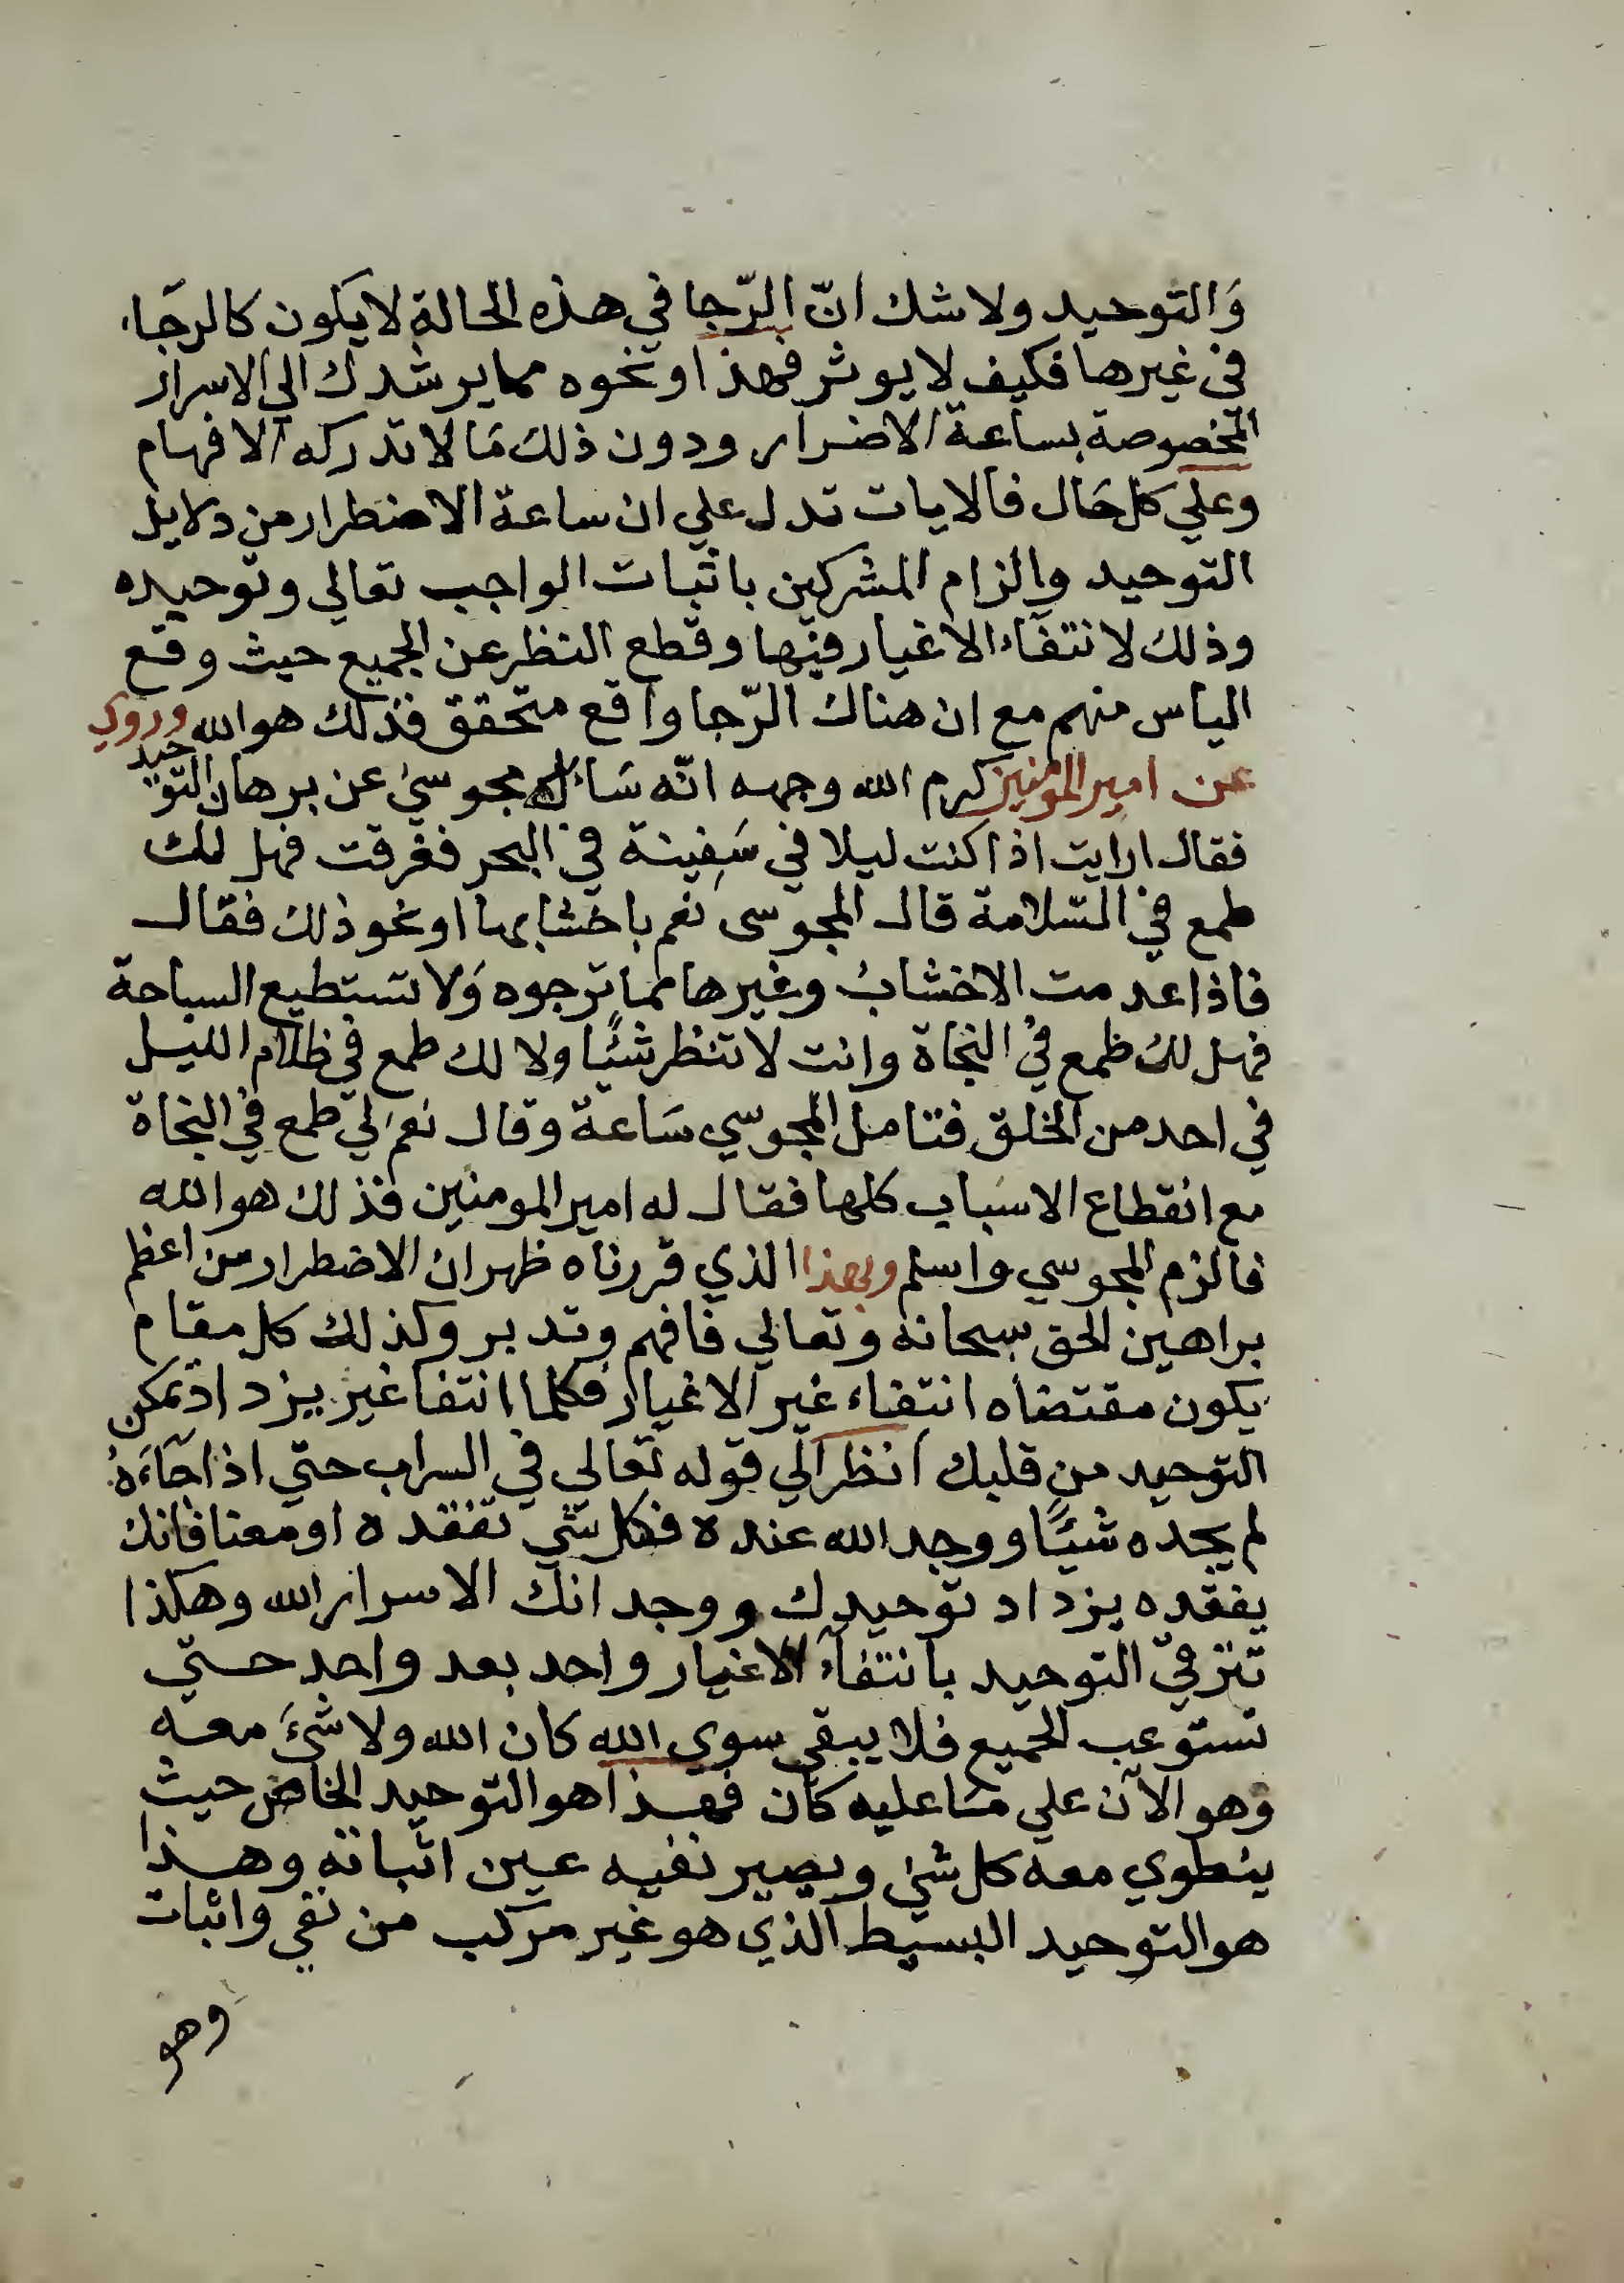 وَالتوحيد ولا شك انّ الرّجا في هذه الحالة لا يكون كالرجَاء
في غيرها فكيف لا يوثر فهذا ونحوه مما يرشدك الي الاسرار
المخصوصة بساعة الاضرار ودون ذلك مَا لا تدركه الافهام
وعلي كل حَال فالايات تدل علي ان ساعة الاضطرار من دلايل
التوحيد والزام المشركين باثبات الواجب تعالي وتوحيده
وذلك لانتفاء الاغيار فيها وقطع النظر عن الجميع حيث وقع
الياس منهم مع ان هناك الرّجا واقع متحقق فذلك هو الله وروي
عن امير المومنين كرم الله وجهه انّه سَاله مجوسي عن برهان التوحيد
فقال ارايت اذا كنت ليلا في سَفِينة في البحر فغرقت فهل لك
طمع في السّلامة قال المجوسى نعم باخشابها او نحو ذلك فقال
فاذا عدمت الاخشابُ وغيرها مما ترجوه وَلا تستطيع السباحة
فهل لك طمع في النجاة وانت لا تنظر شئًيا ولا لك طمع في ظلام الليل
في احد من الخلق فتامل المجوسي سَاعة وقال نعم لي طمع في النجاة
مع انقطاع الاسَباب كلها فقال له امير المومنين فذلك هو الله
فالزم المجوسي واسلم وبهذا الذي قررناه ظهر ان الاضطرار من اعظم
براهين الحق سبحانه وتعالي فافهم وتدبر وكذلك كل مقام
يكون مقتضاه انتفاء غير الاغيار فكلما انتفا غير يزداد تمكن
التوحيد من قلبك انظر الي قوله تعالي في السراب حتي اذا جَآءَهُ
لم يجده شيًئا ووجد الله عنده فكل شي تفقده او معنا فانك
بفقده يزداد توحيدك ووجدانك الاسرار الله وهكذا
تترقيّ التوحيد بانتفآء الاغيار واحد بعد واحد حتي
تستوعب الجميع فلا يبقي سوي الله كان الله ولا شئَ معه
وهو الآن علي مَا عليه كان فهذا هو التوحيد الخاص حيث
ينطوي معه كل شئ ويصير نفيه عين اثباته وهذا
هو التوحيد البسيط الذي هو غير مركب من نفي واثبات
وهو